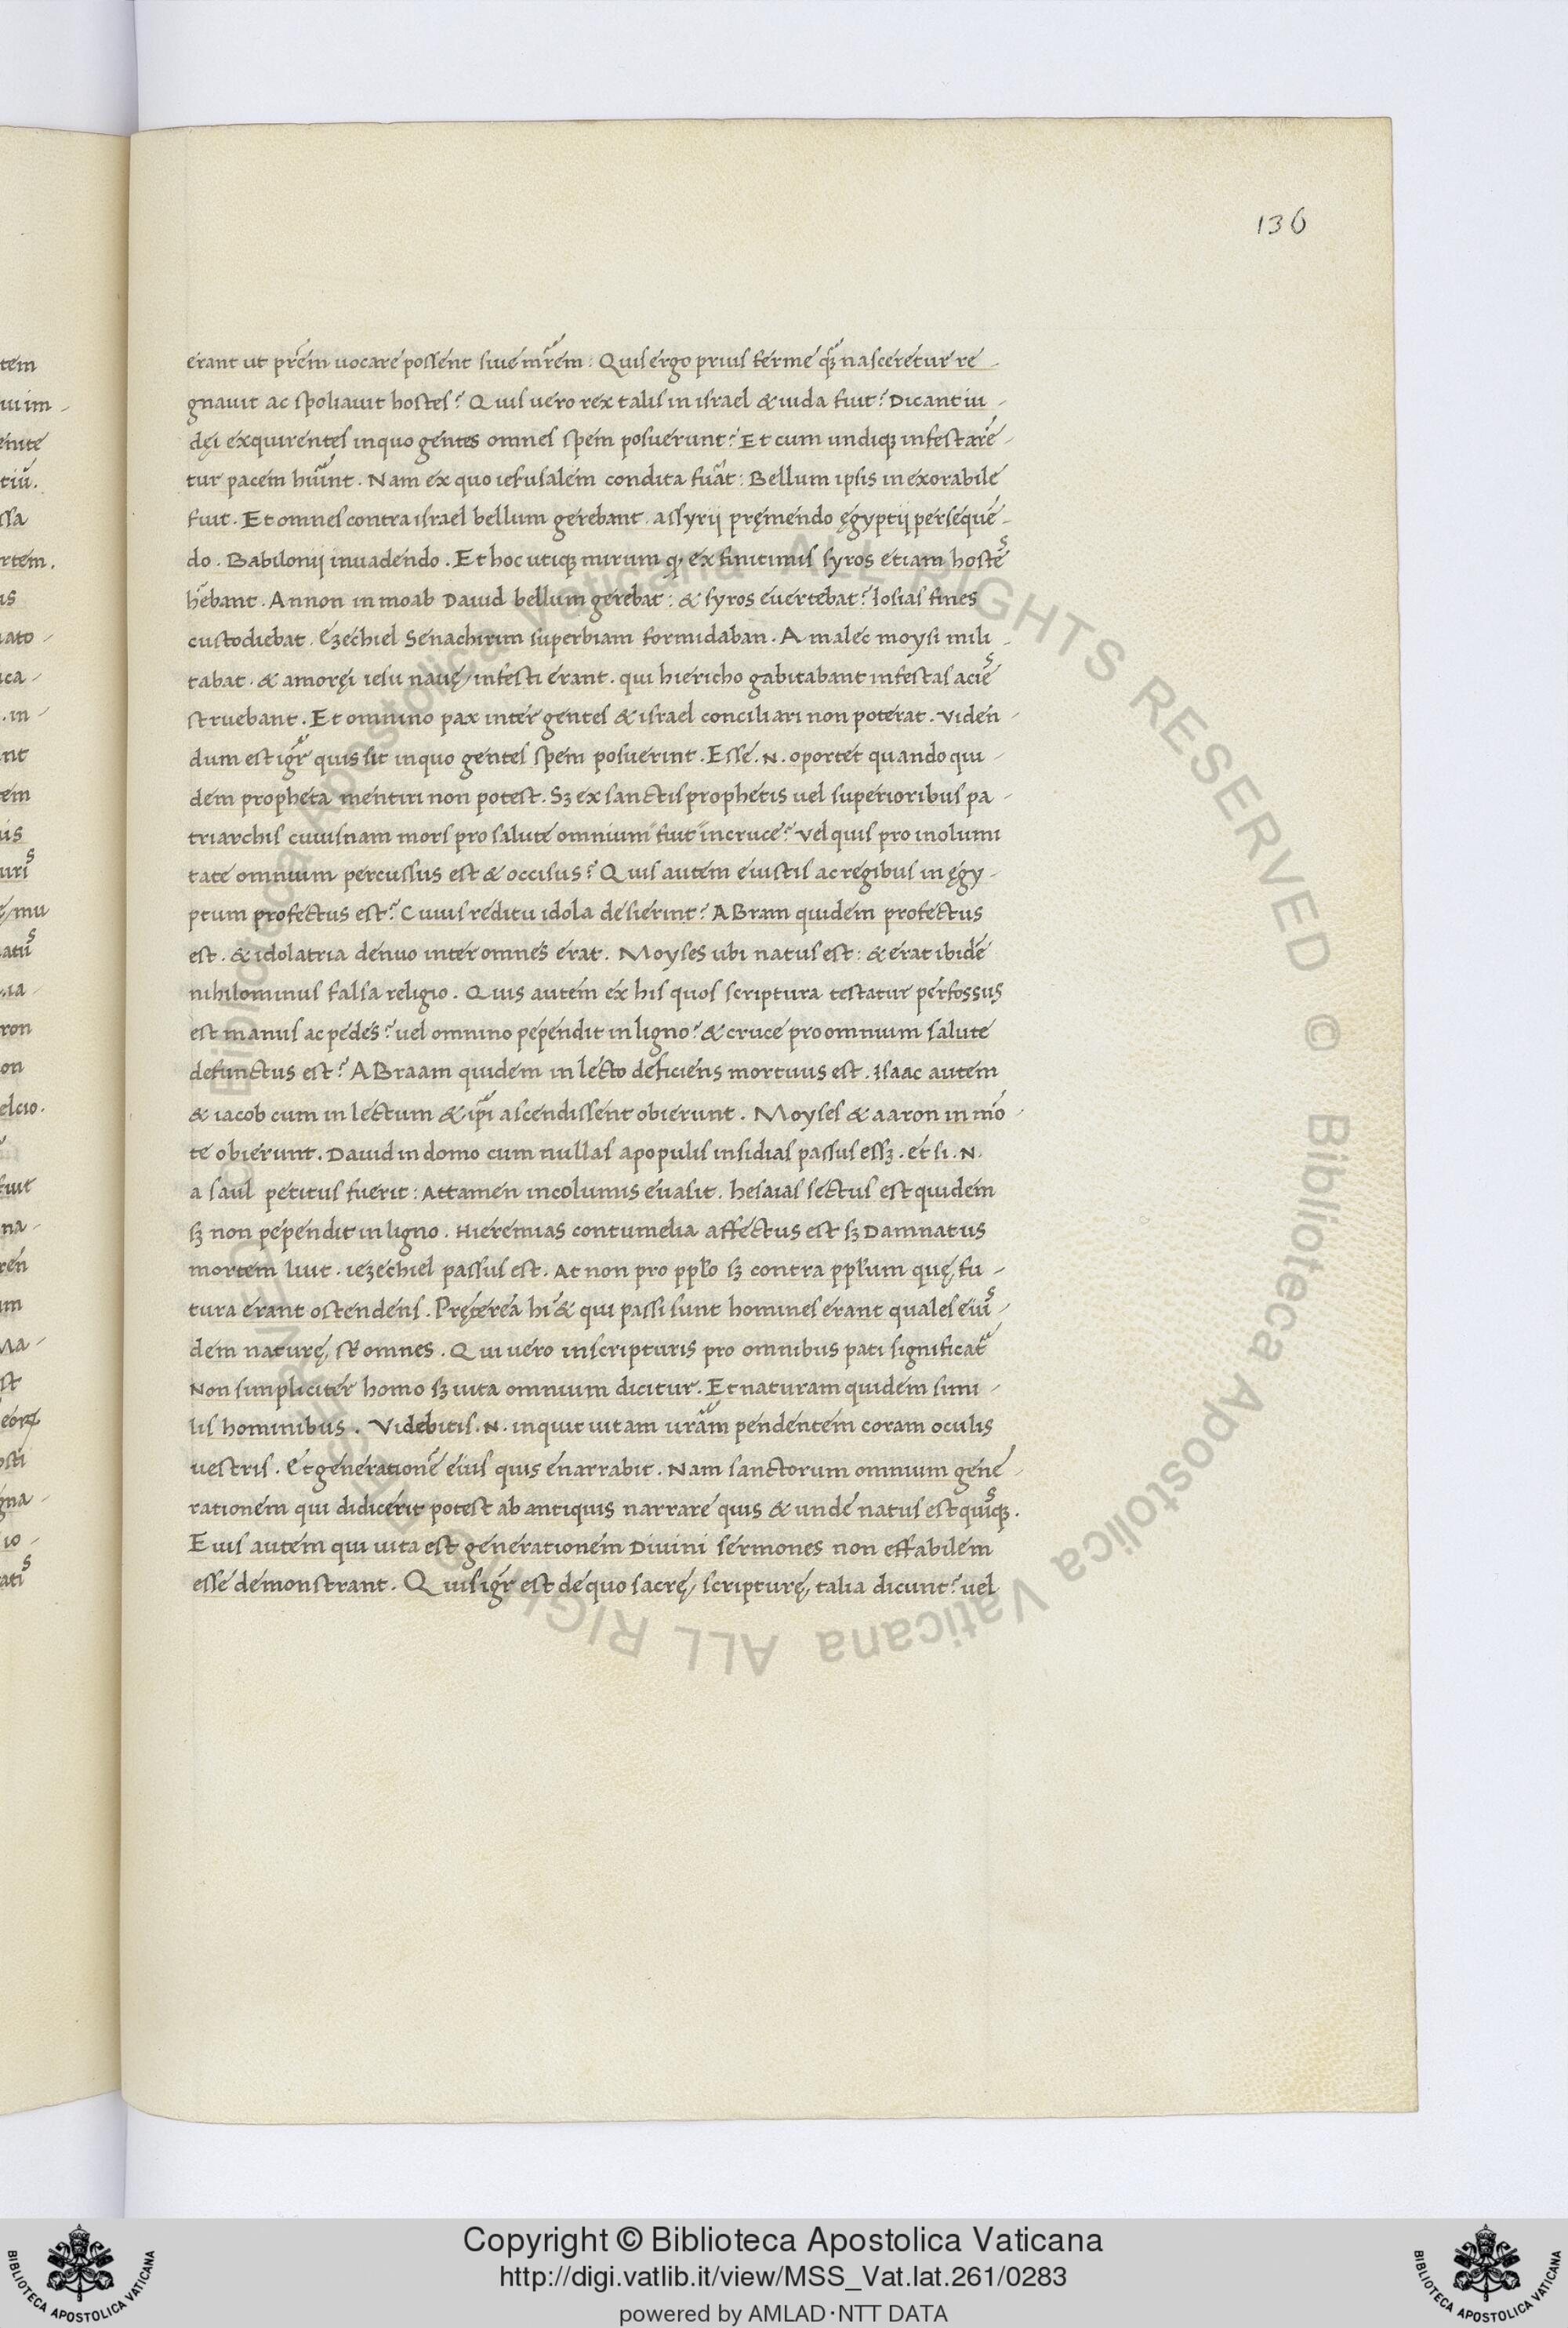 136
erant ut p̄rem uocare possent siue m̄rem: Quis ergo prius ferme q̄ȝ nasceretur re-
gnauit ac spoliauit hostes? Quis uero rex talis in israel & iuda fuit? Dicant iu-
dęi exquirentes in quo gentes omnes spem posuerunt? Et cum undiqȝ infestare-
tur pacem hūint. Nam ex quo ierusalem condita fūat: Bellum ipsis inexorabile
fuit. Et omnes contra israel bellum gerebant. assyrij pręmendo ęgyptij perseque-
do. Babilonij inuadendo. Et hoc utiqȝ mirum ꝙ ex finitimis syros etiam hostes
h̄ebant. Annon in moab Dauid bellum gerebat: & syros euertebat? Iosias fines
custodiebat. Ezechiel Senachirim superbiam formidaban. Amalec moysi mili-
tabat. & amoręi iesu nauę infesti erant. qui hiericho gabitabant infestas acies
struebant. Et omnino pax inter gentes & israel conciliari non poterat. Viden-
dum est igr̄ quis sit in quo gentes spem posuerint. Esse .N. oportet quandoqui-
dem propheta mentiri non potest. Sȝ ex sanctis prophetis uel superioribus pa-
triarchis cuiusnam mors pro salute omnium fuit in cruce? Vel quis pro inolumi
tate omnium percussus est & occisus? Quis autem e iustis ac regibus in ęgy-
ptum profectus est? Cuius reditu idola desierint? ABram quidem profectus
est. & idolatria denuo inter omnes erat. Moyses ubi natus est: & erat ibidē
nihilominus falsa religio. Quis autem ex his quos scriptura testatur perfossus
est manus ac pedes? uel omnino pependit in ligno? & cruce pro omnium salute
defunctus est? ABraam quidem in lecto deficiens mortuus est. Isaac autem
& iacob cum in lectum & ip̄i ascendissent obierunt. Moyses & aaron in mō-
te obierunt. Dauid in domo cum nullas a populis insidias passus essȝ. et si .N.
a saul petitus fuerit: Attamen incolumis euasit. hesaias sectus est quidem
sȝ non pependit in ligno. Hieremias contumelia affectus est sȝ Damnatus
mortem luit. iezechiel passus est. At non pro pp̄lo sȝ contra pp̄lum quę fu-
tura erant ostendens. Pręterea hi & qui passi sunt homines erant quales eius-
dem naturę st̄ omnes. Qui uero in scripturis pro omnibus pati significat̄
Non simpliciter homo sȝ uita omnium dicitur. Et naturam quidem simi-
lis hominibus. Videbitis .N. inquit uitam ur̄am pendentem coram oculis
uestris. Et generationē eius quis enarrabit. Nam sanctorum omnium gene-
rationem qui didicerit potest ab antiquis narrare quis & unde natus est quisqȝ.
Eius autem qui uita est generationem Diuini sermones non effabilem
esse demonstrant. Quis igr̄ est de quo sacrę scripturę talia dicunt? uel
Copyright © Biblioteca Apostolica Vaticana
http://digi.vatlib.it/view/MSS_Vat.lat.261/0283
powered by AMLAD·NTT DATA
BIBLIOTECA APOSTOLICA VATICANA
BIBLIOTECA APOSTOLICA VATICANA
© Biblioteca Apostolica Vaticana ALL RIGHTS RESERVED © Biblioteca Apostolica Vaticana ALL RIGHTS RESERVED